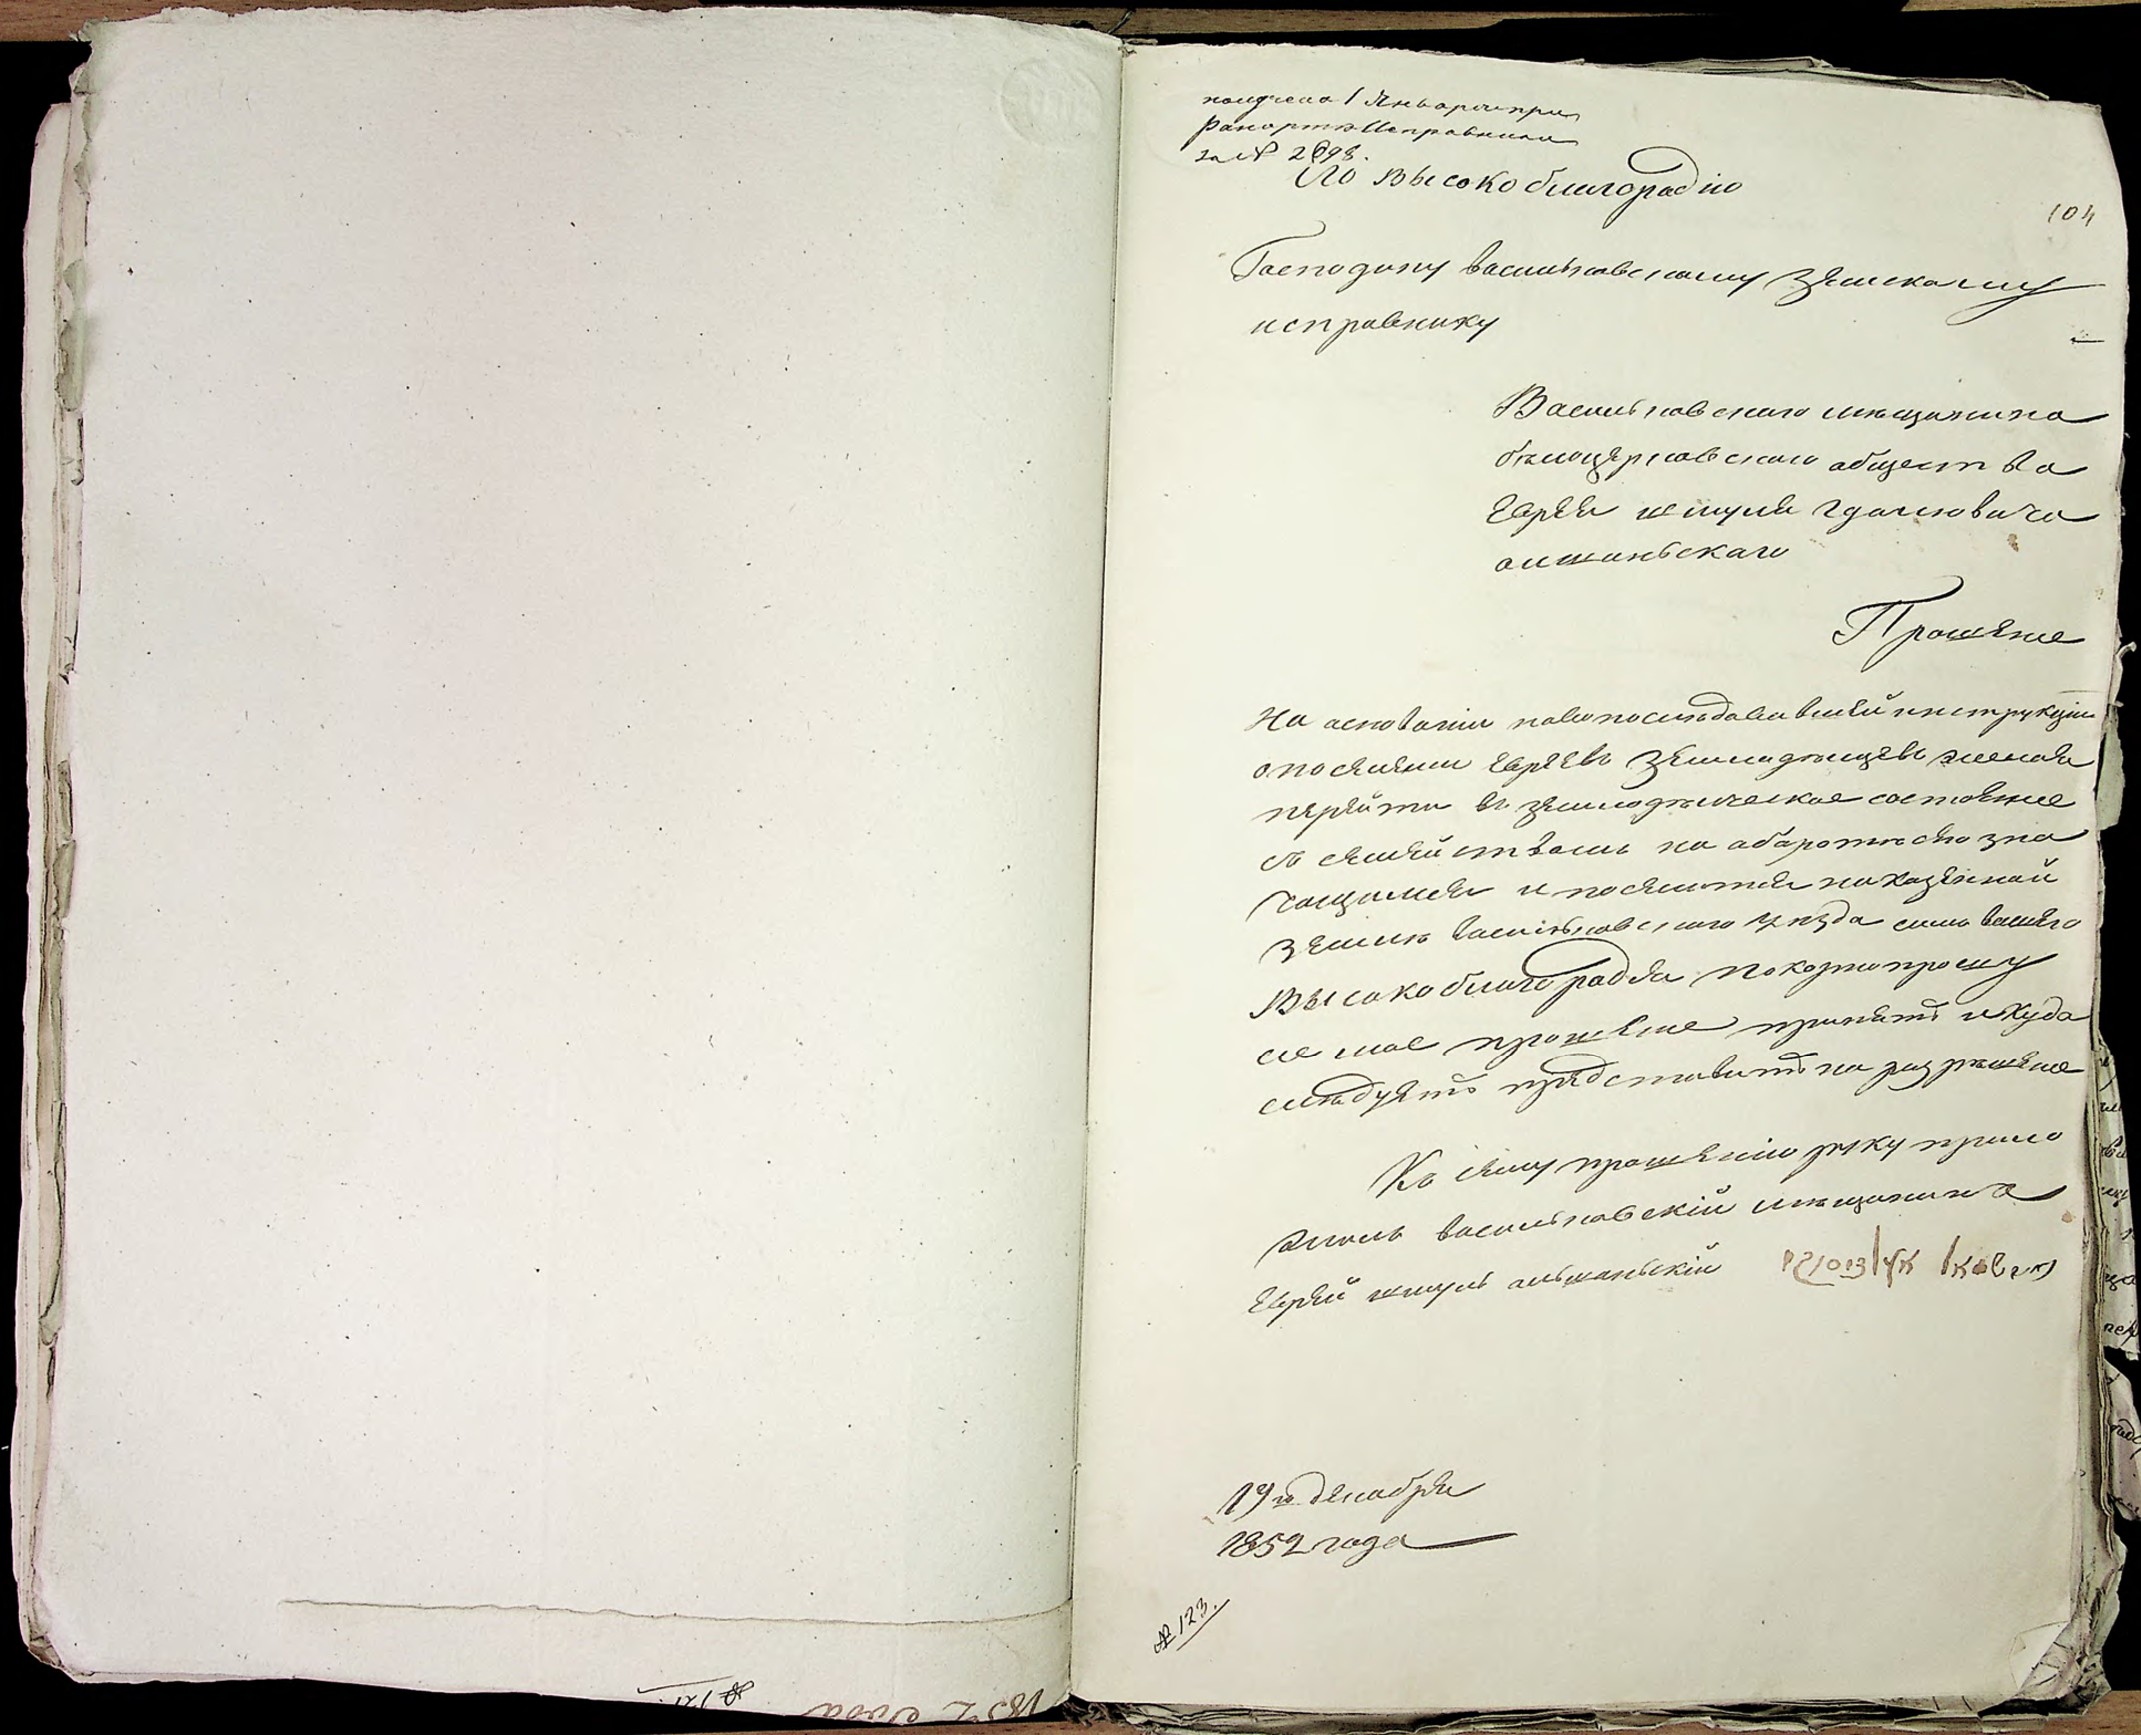 получено 1 Января при
рапорте Исправника
за № 2698.
Его Высокоблагородію
104
Господину васильковскому земскому
исправнику
Васильковского мещанина
белоцерковского общества
Еврея шмуля
ольшаньскаго
Прошение
На основании новопоследовавшей инструкции
о поселении евреев земледельцев желая
перейти в земледелческое состояние
съ семейством на обороте сего зна
чащимся и поселится на казенной
земле васильковского уезда симъ вашего
Высокоблагородия покорно прошу
сие мое прошение принять и куда
следуетъ представить на разрешение
Къ сему прошению руку прило
жилъ васильковскій мещанинъ
Еврей шмуль ольшаньскій
19го декабря
1852 года
№ 123.
1852 года